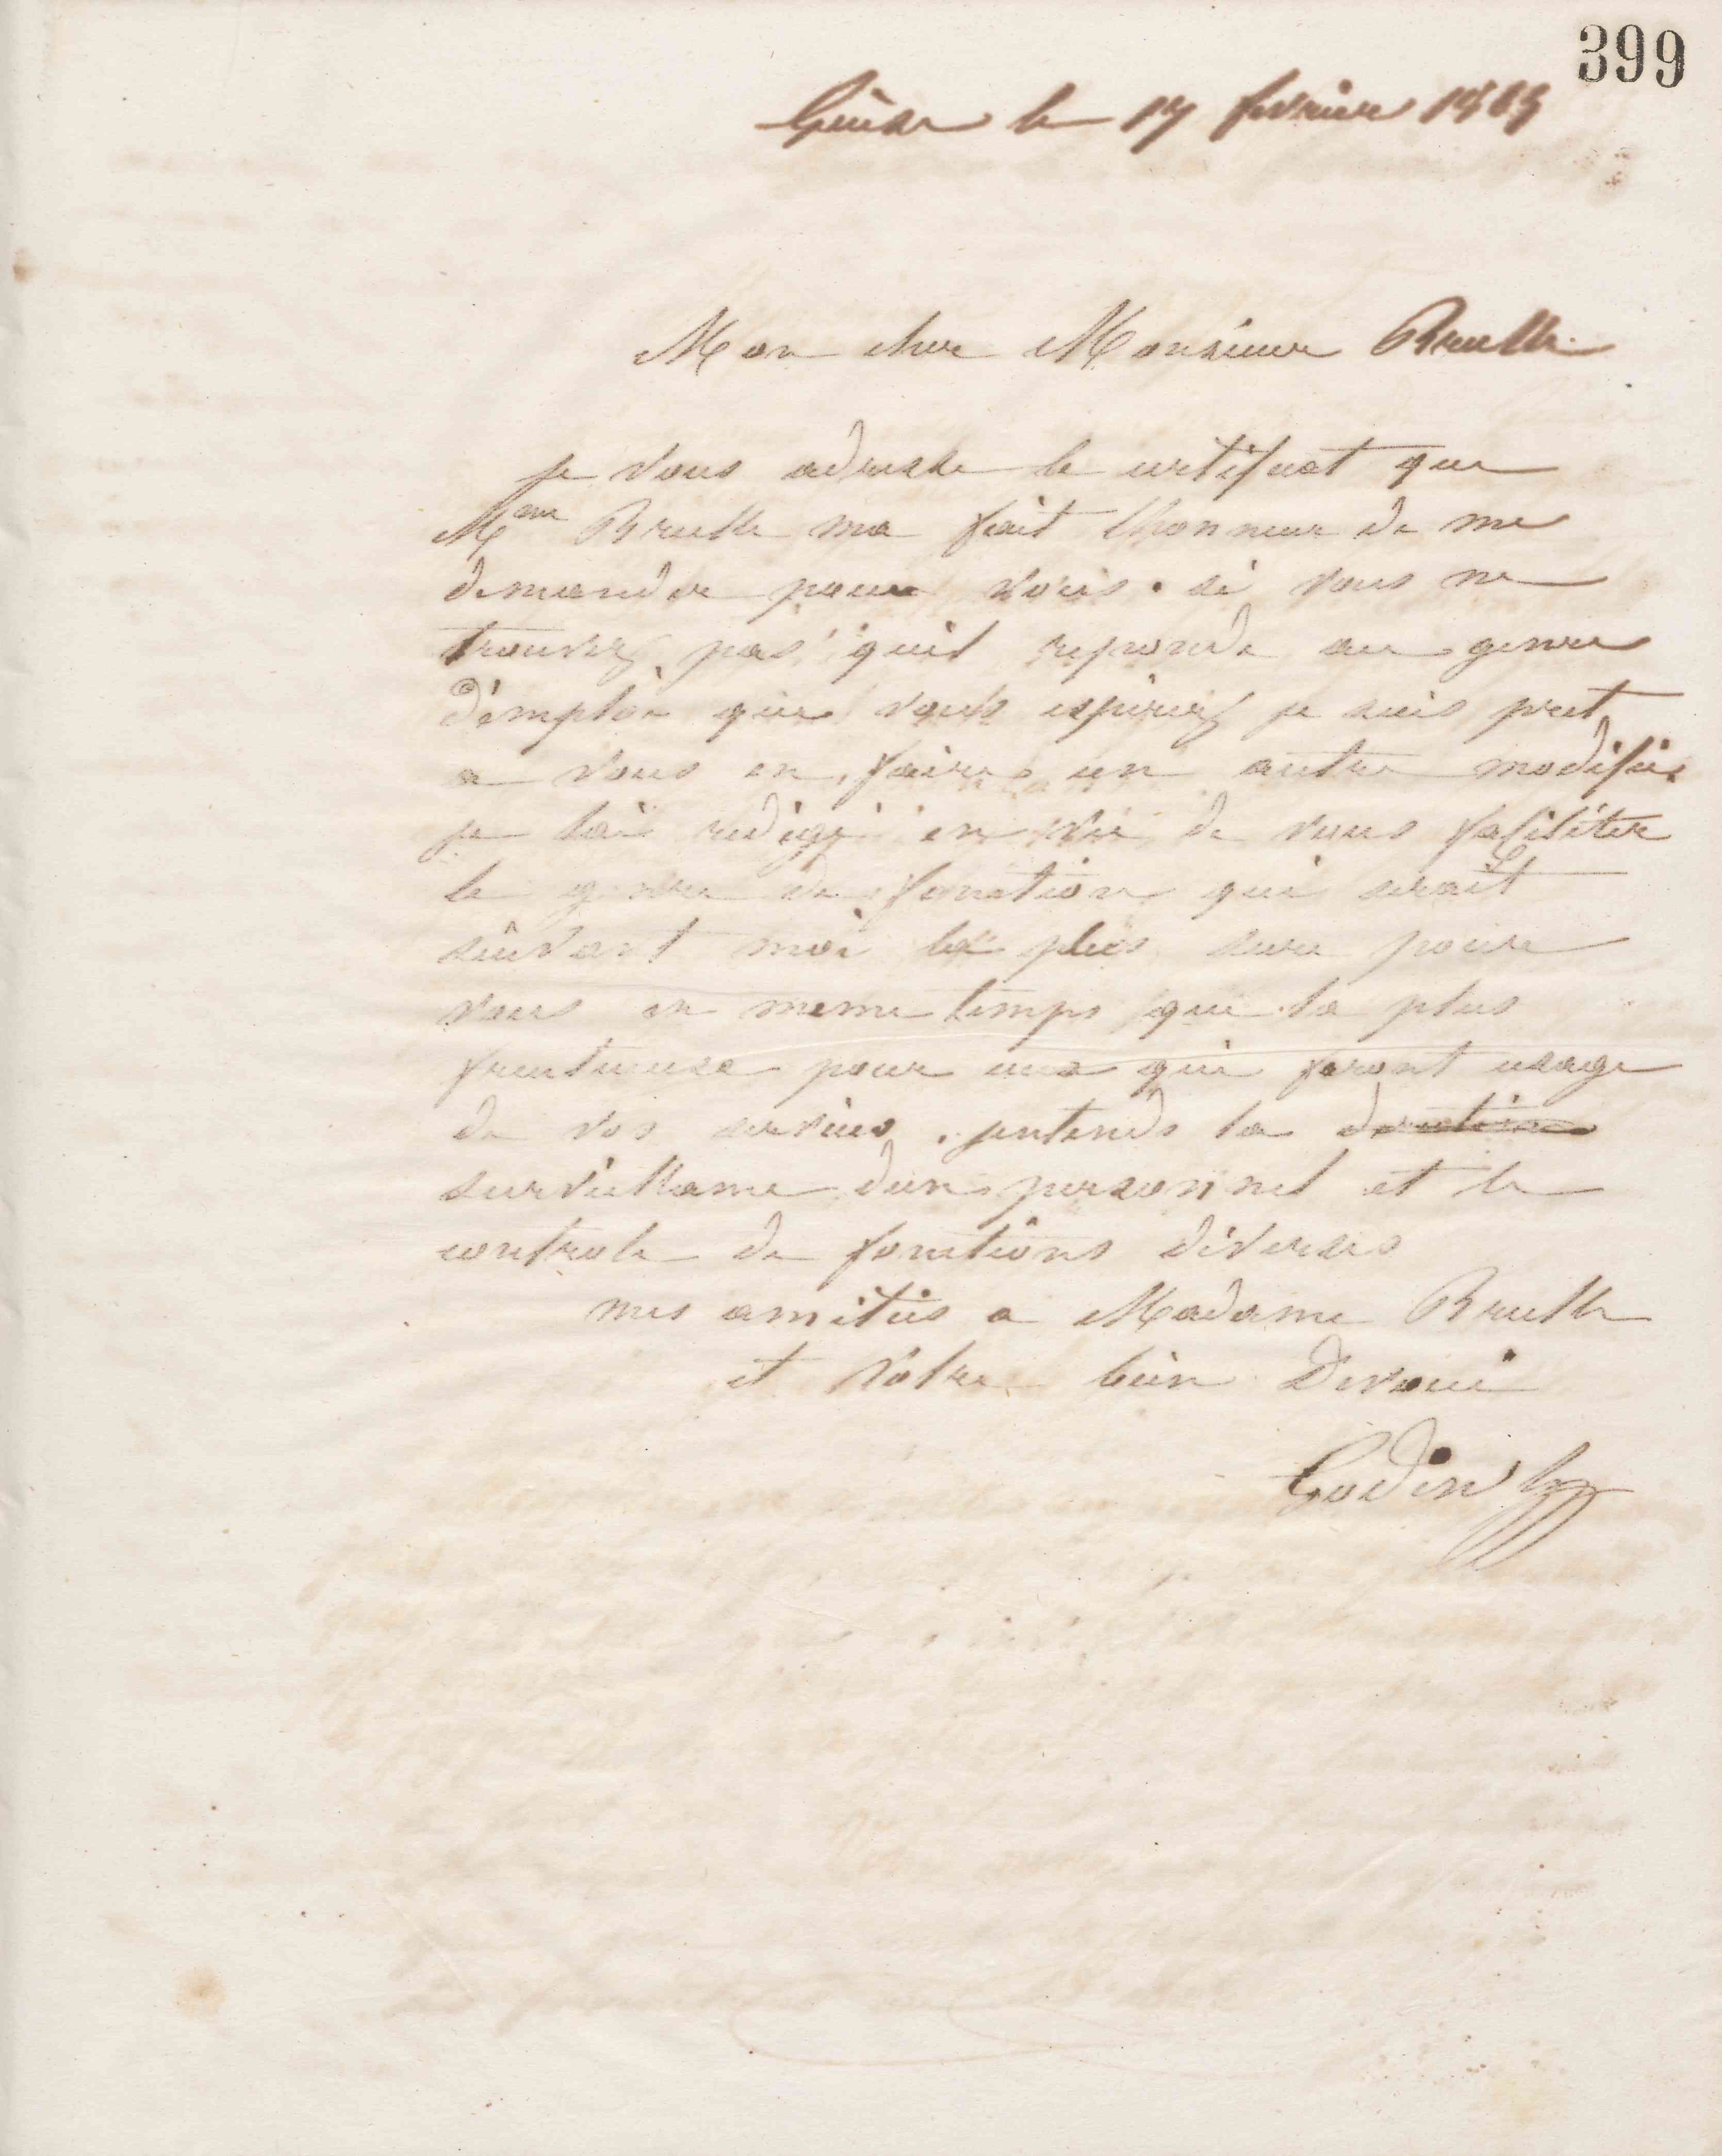 399
Guise le 17 fevrier 1865
Mon cher Monsieur Brullé
je vous adresse le certificat que
Mme Brullé ma fait lhonneur de me
demander pour vous. si vous ne
trouvez pas quil reponde au genre
d'emploi que vous espériez je suis pret
a vous en faire un autre modifié.
je lai redigé en vue de vous faciliter
le genre de fonction qui serait
suivant moi la plus sure pour
vous en meme temps que la plus
fructueuse pour ceux qui feront usage
de vos services. jentends la direction
surveillance dun personnel et le
controle de fonctions diverses
mes amitiés a Madame Brullé
et votre bien Devoué
Godin